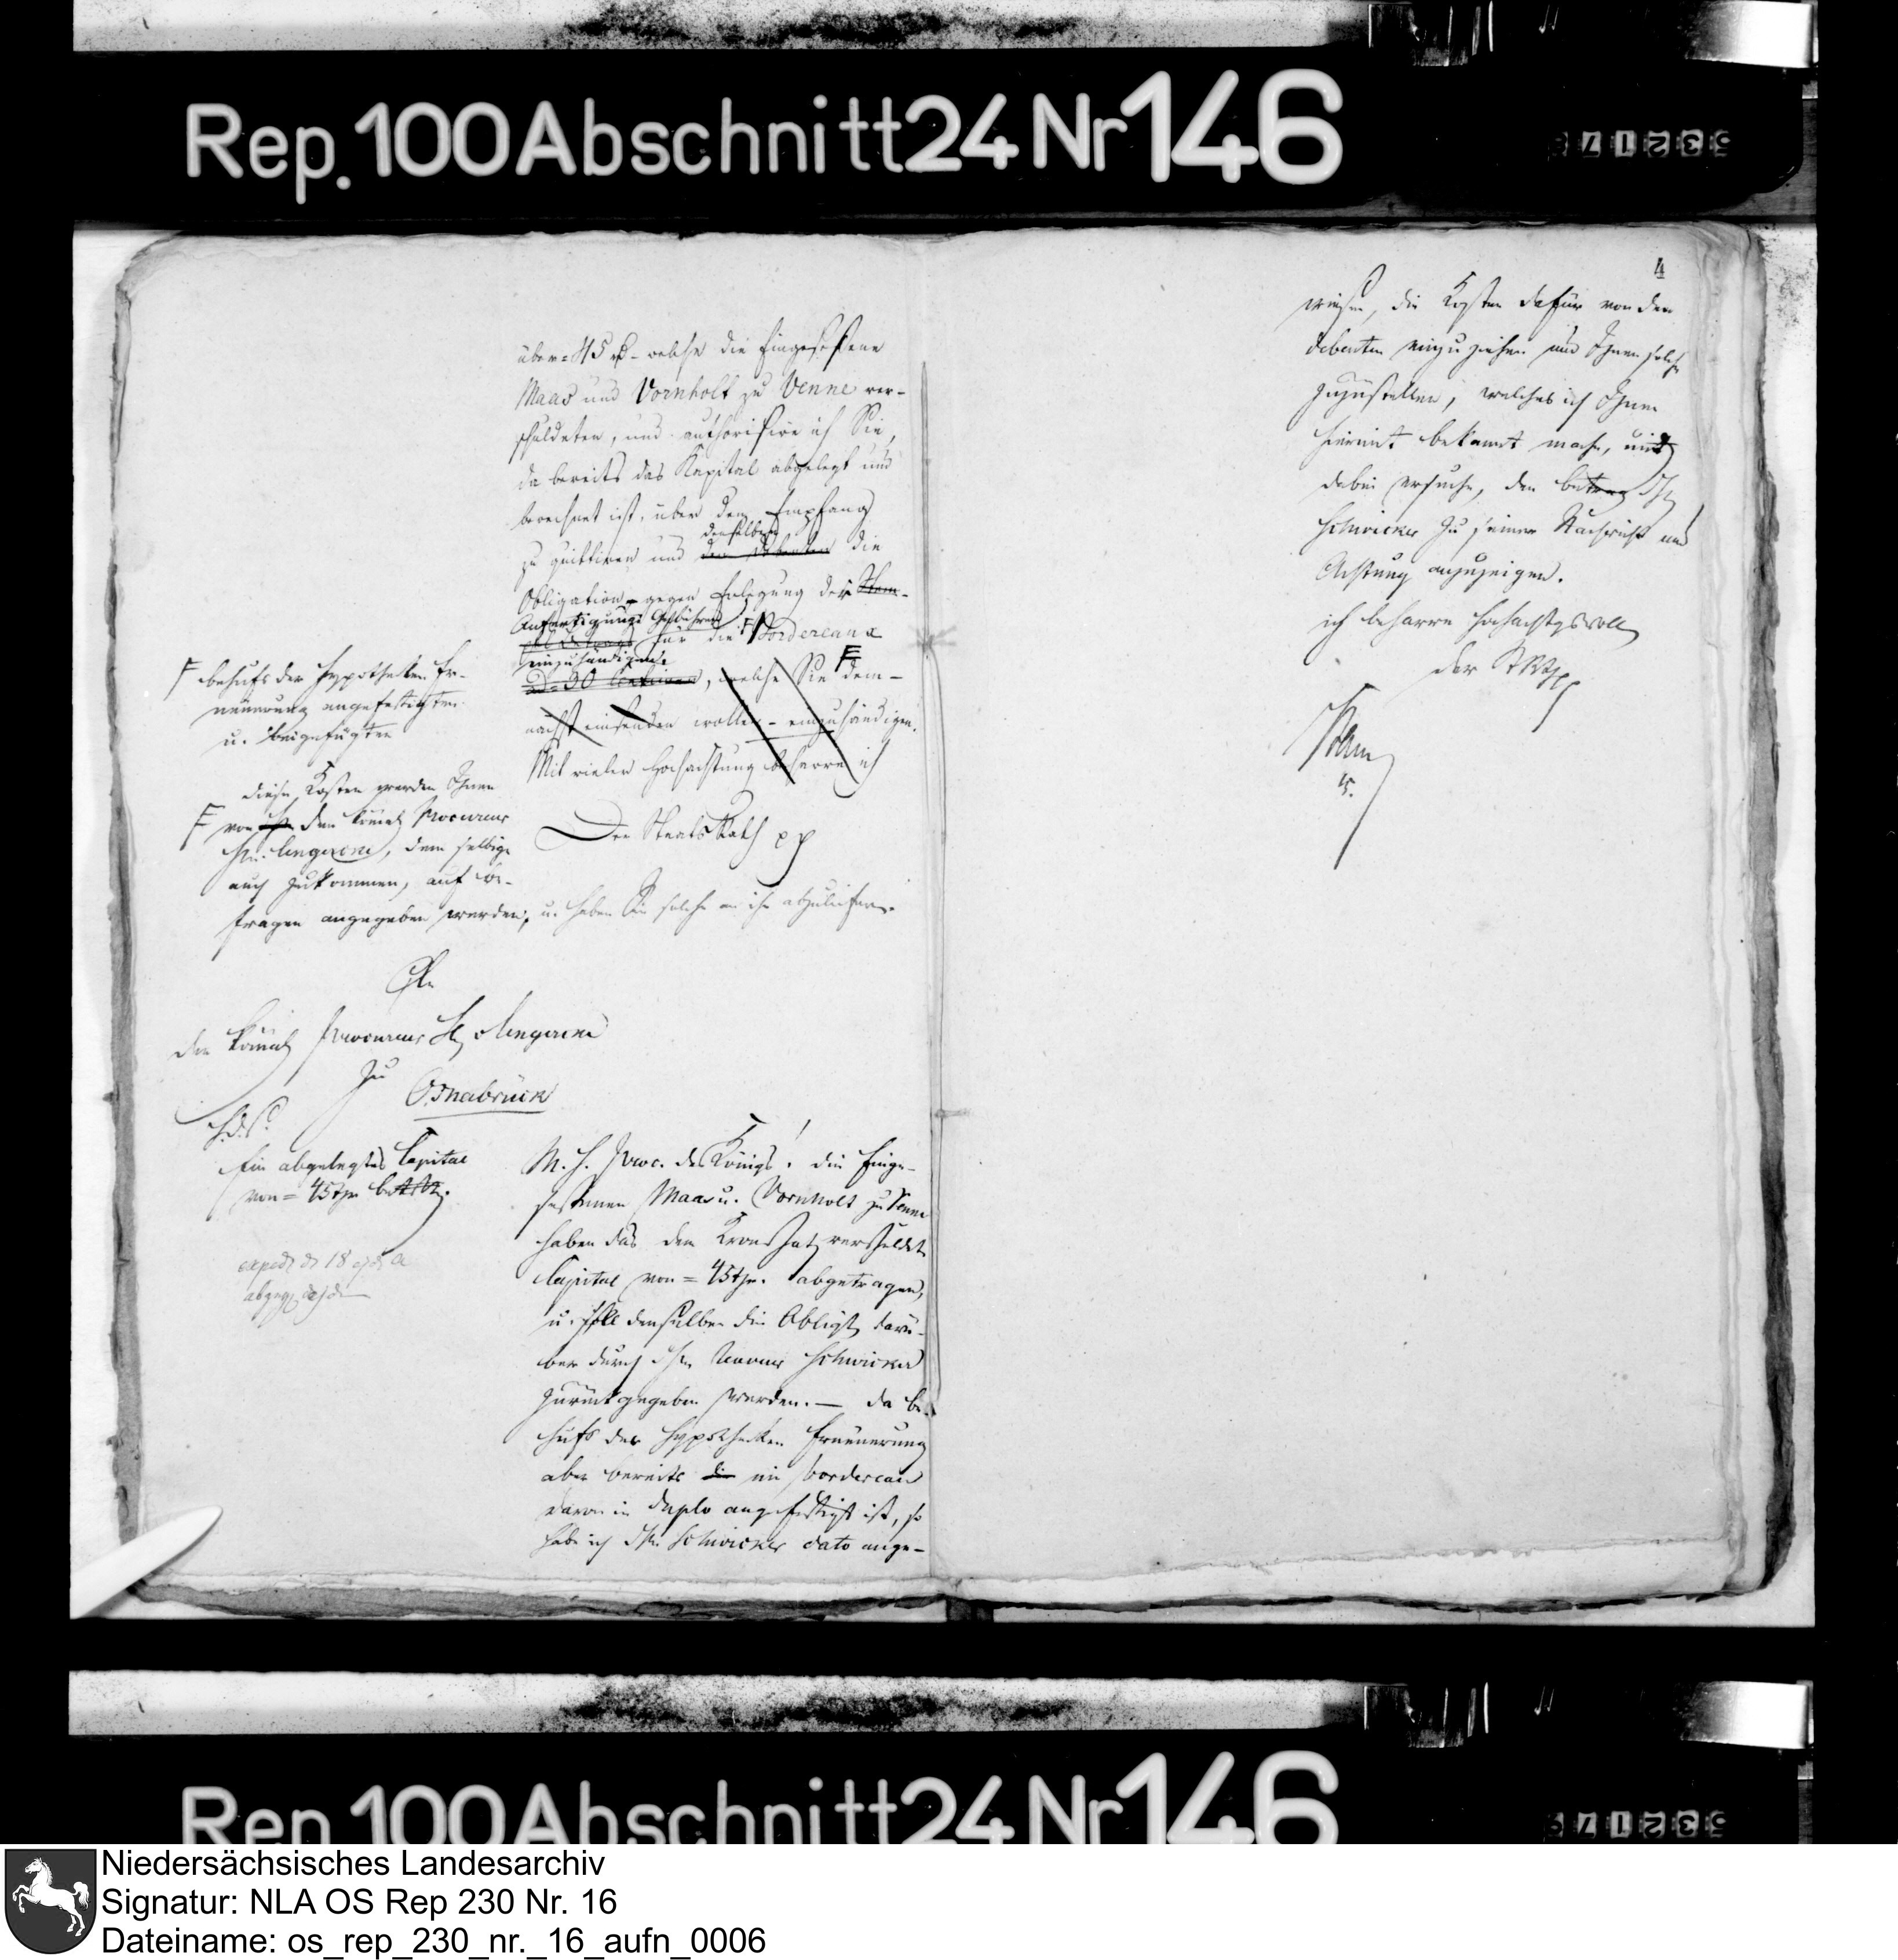 Rep. 100 Abschnitt 24 Nr 146
über = 45 rℓ - welche die Eingesessene
Maas und Vornholt zu Venne ver-
schuldeten, und authorisire ich Sie,
da bereits das Kapital abgelegt und
berechnet ist, über den Empfang
zu quittiren und
denselben
die
Obligation - gegen Erlegung der
Anfertigungs Gebühren
für die F Bordereaux
einzuhändigen.
ad = 30 Centimen, welche Sie F dem-
nächst einsenden wollen - einzuhändigen.
Mit vieler Hochachtung beharre ich
Der Staats Rath pp
F behufs der Hypotheken Er-
neuerung angefertigten
u. beigefügten
diese Kosten werden Ihnen
F von dem Königl Procureur
auch zukommen, auf be-
fragen angegeben werden, u. haben Sie solche an ihn abzuliefern.
An
den Königl Procureur
zu
Osnabrück
Ein abgelegtes Capital
von = 45 thr.
M. H. Proc. des Königs! die Einge-
sessenen Maas u. Vornholt zu Venne
haben das dem Kronschatz verschuldete
Capital von = 45 thr. abgetragen,
u. soll denselben die Obligat darü-
ber durch Hrn Receveur Schwicker
zurückgegeben werden. — da be-
hufs der Hypotheken Erneuerung
aber bereits die ein bordereau
davon in duplo angefertigt ist, so
habe ich Hrn Schwicker dato ange-
4
wiesen, die Kosten dafür von den
debenten einzuziehen und Ihnen solche
zuzustellen, welches ich Ihnen
hiermit bekannt mache, und
dabei ersuche, den betrag Hrn
Schwicker zu seiner Nachricht und
Achtung anzuzeigen.
ich beharre hochachtgsvoll
der StR pp
Rep. 100 Abschnitt 24 Nr 146
Niedersächsisches Landesarchiv
Signatur: NLA OS Rep 230 Nr. 16
Dateiname: os_rep_230_nr._16_aufn_0006